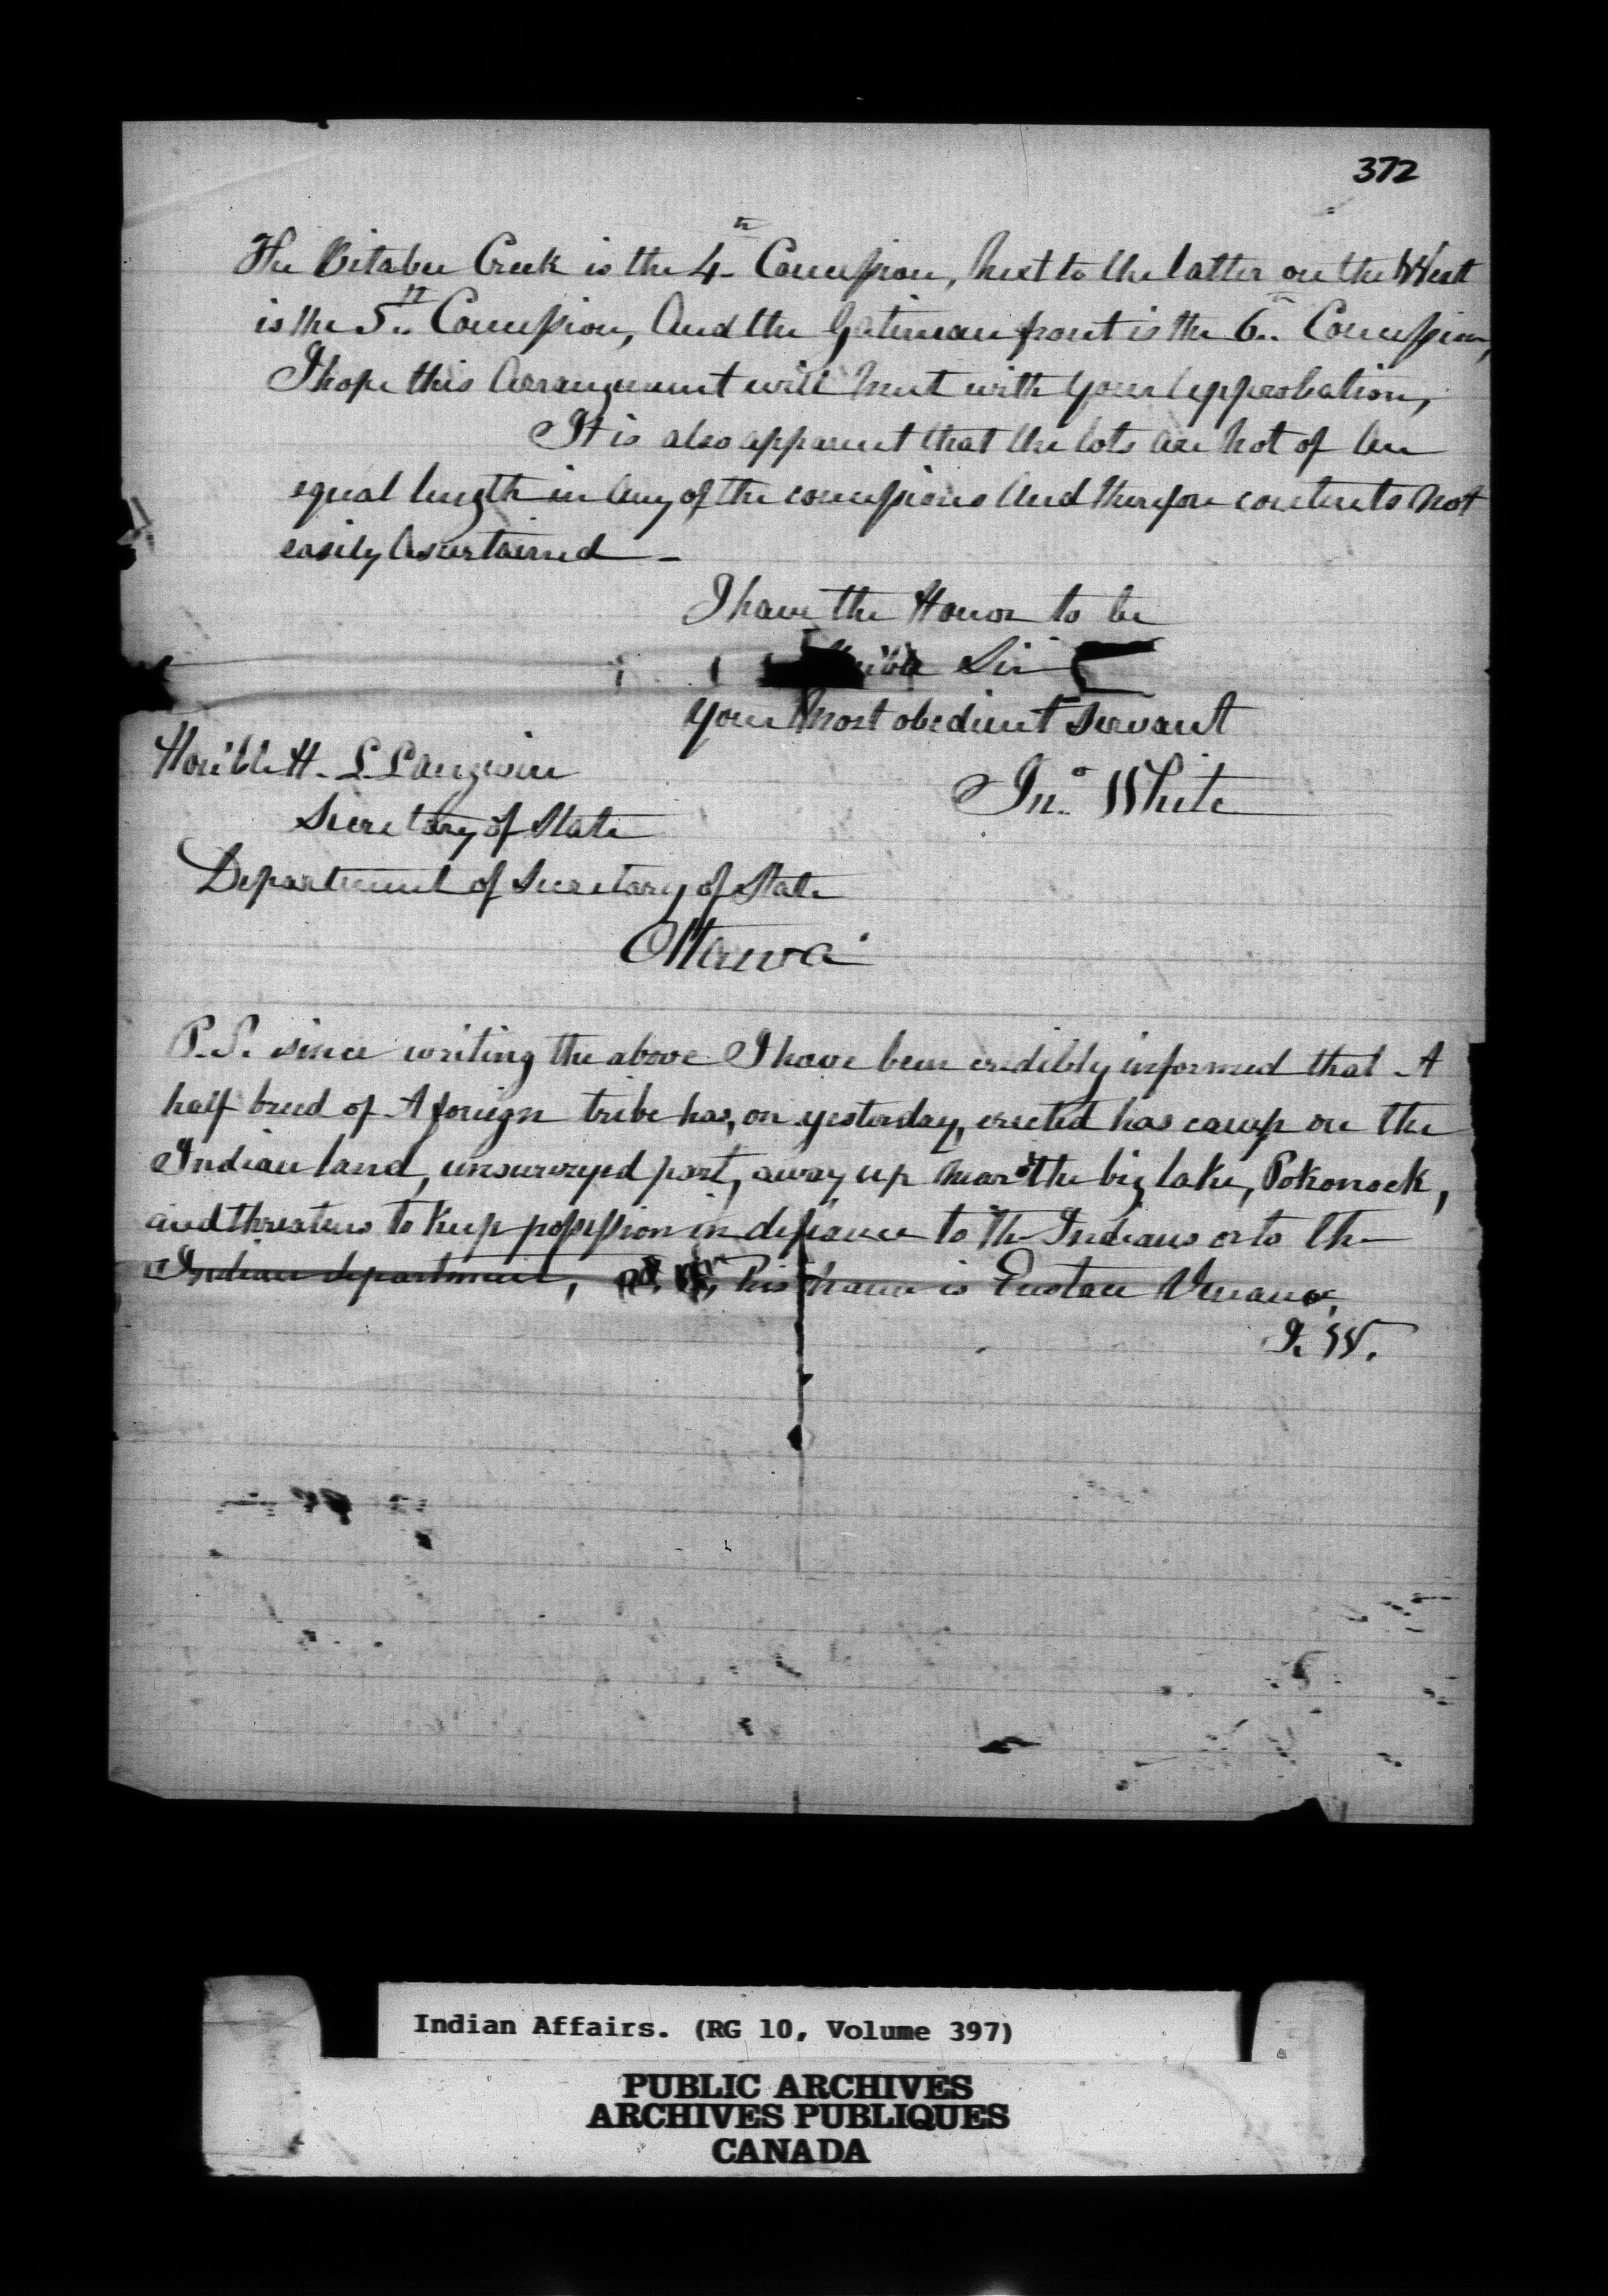 372
The Bitabee Creek is the 4th Concession, Next to the latter on the West
is the 5th Concession, And the Gatineau front is the 6th Concession,
I hope this Arrangement will Meet with your Approbation,
It is also apparent that the lots are Not of An
equal length in Any of the concessions And therefore contents Not
easily Ascertained –
I have the Honor to be
Sir
Your Most obedient Servant
Jno White
Hon'ble H. L. Langevin
Secretary of State
Department of Secretary of State
Ottawa
P.S. since writing the above I have been credibly informed that A
half breed of A foreign tribe has, on yesterday, erected has camp on the
Indian land, unsurveyed part, away up Near the big lake, Pokonock,
and threatens to Keep possession in defiance to the Indians or to the
Indian department, his Name is Eustace
J. W.
Indian Affairs. (RG 10, Volume 397)
PUBLIC ARCHIVES
ARCHIVES PUBLIQUES
CANADA